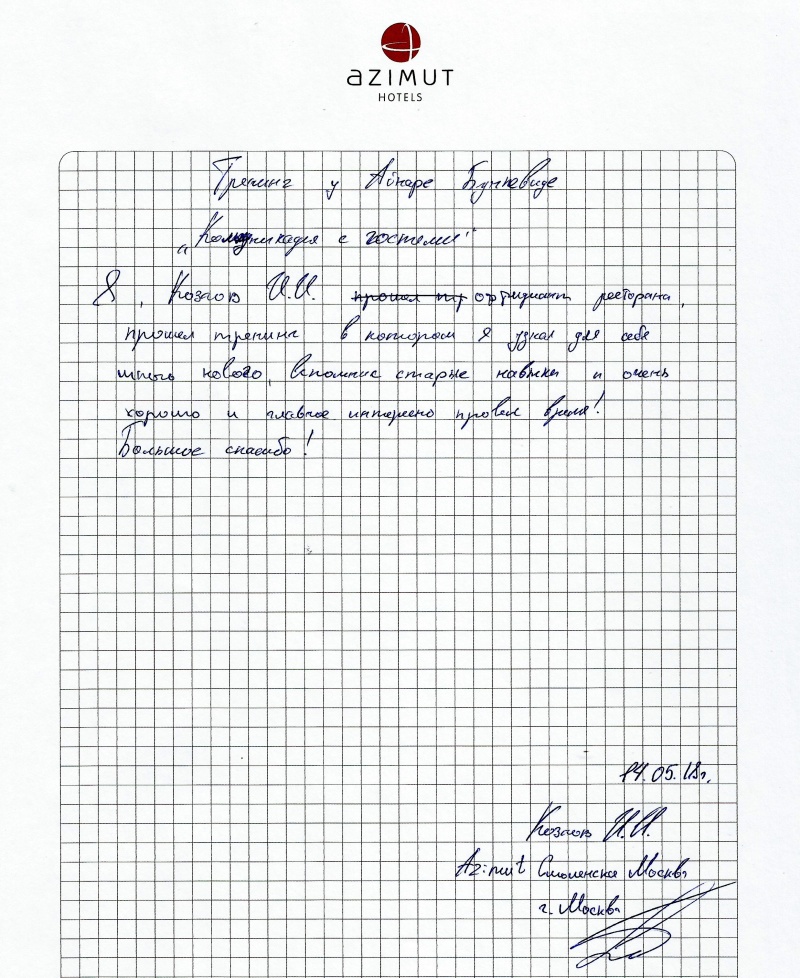 AZIMUT
HOTELS
Тренинг у Айнаре
„Коммуникация с гостями"
Я, Козлов И.И. ~~прошел тр~~ официант ресторана,
прошел тренинг в котором я узнал для себя
много нового, вспомнил старые навыки и очень
хорошо и главное интересно провел время!
Большое спасибо!
14.05.18г.
Козлов И.И.
Azimut Смоленская Москва
г. Москва